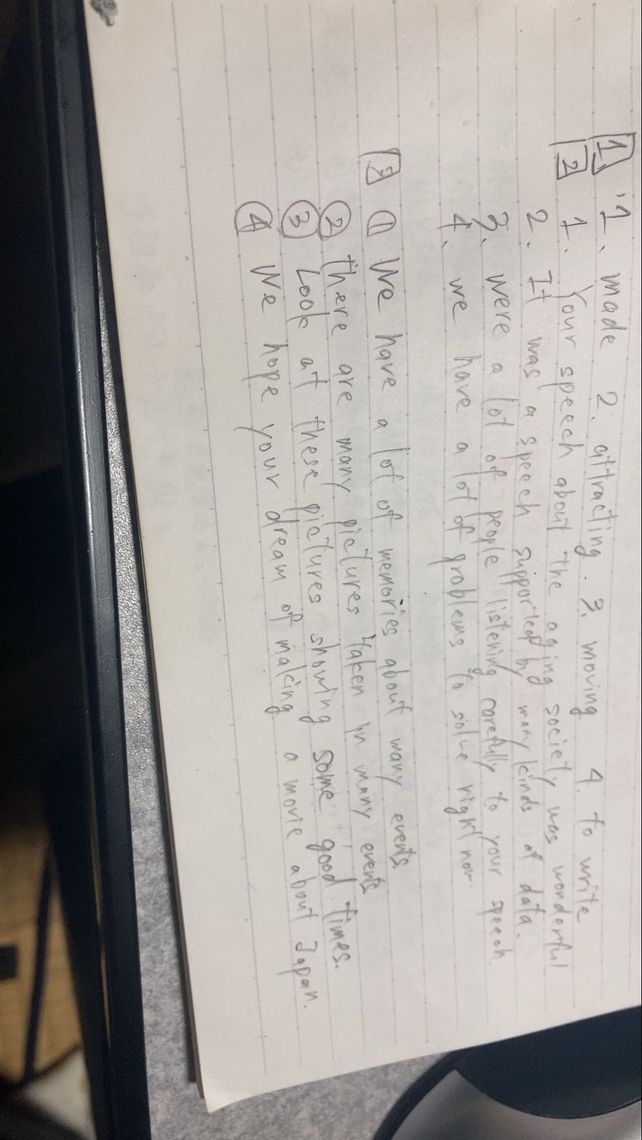 [1] 1. made 2. attracting. 3. moving 4. to write
[2] 1. Your speech about the aging society was wonderful
2. It was a speech supported by many kinds of data.
3. were a lot of people listening carefully to your speech
4. we have a lot of problems to solve right now
[3] ① We have a lot of memories about many events.
② there are many pictures taken in many events
③ Look at these pictures showing some good times.
④ We hope your dream of making a movie about Japan.